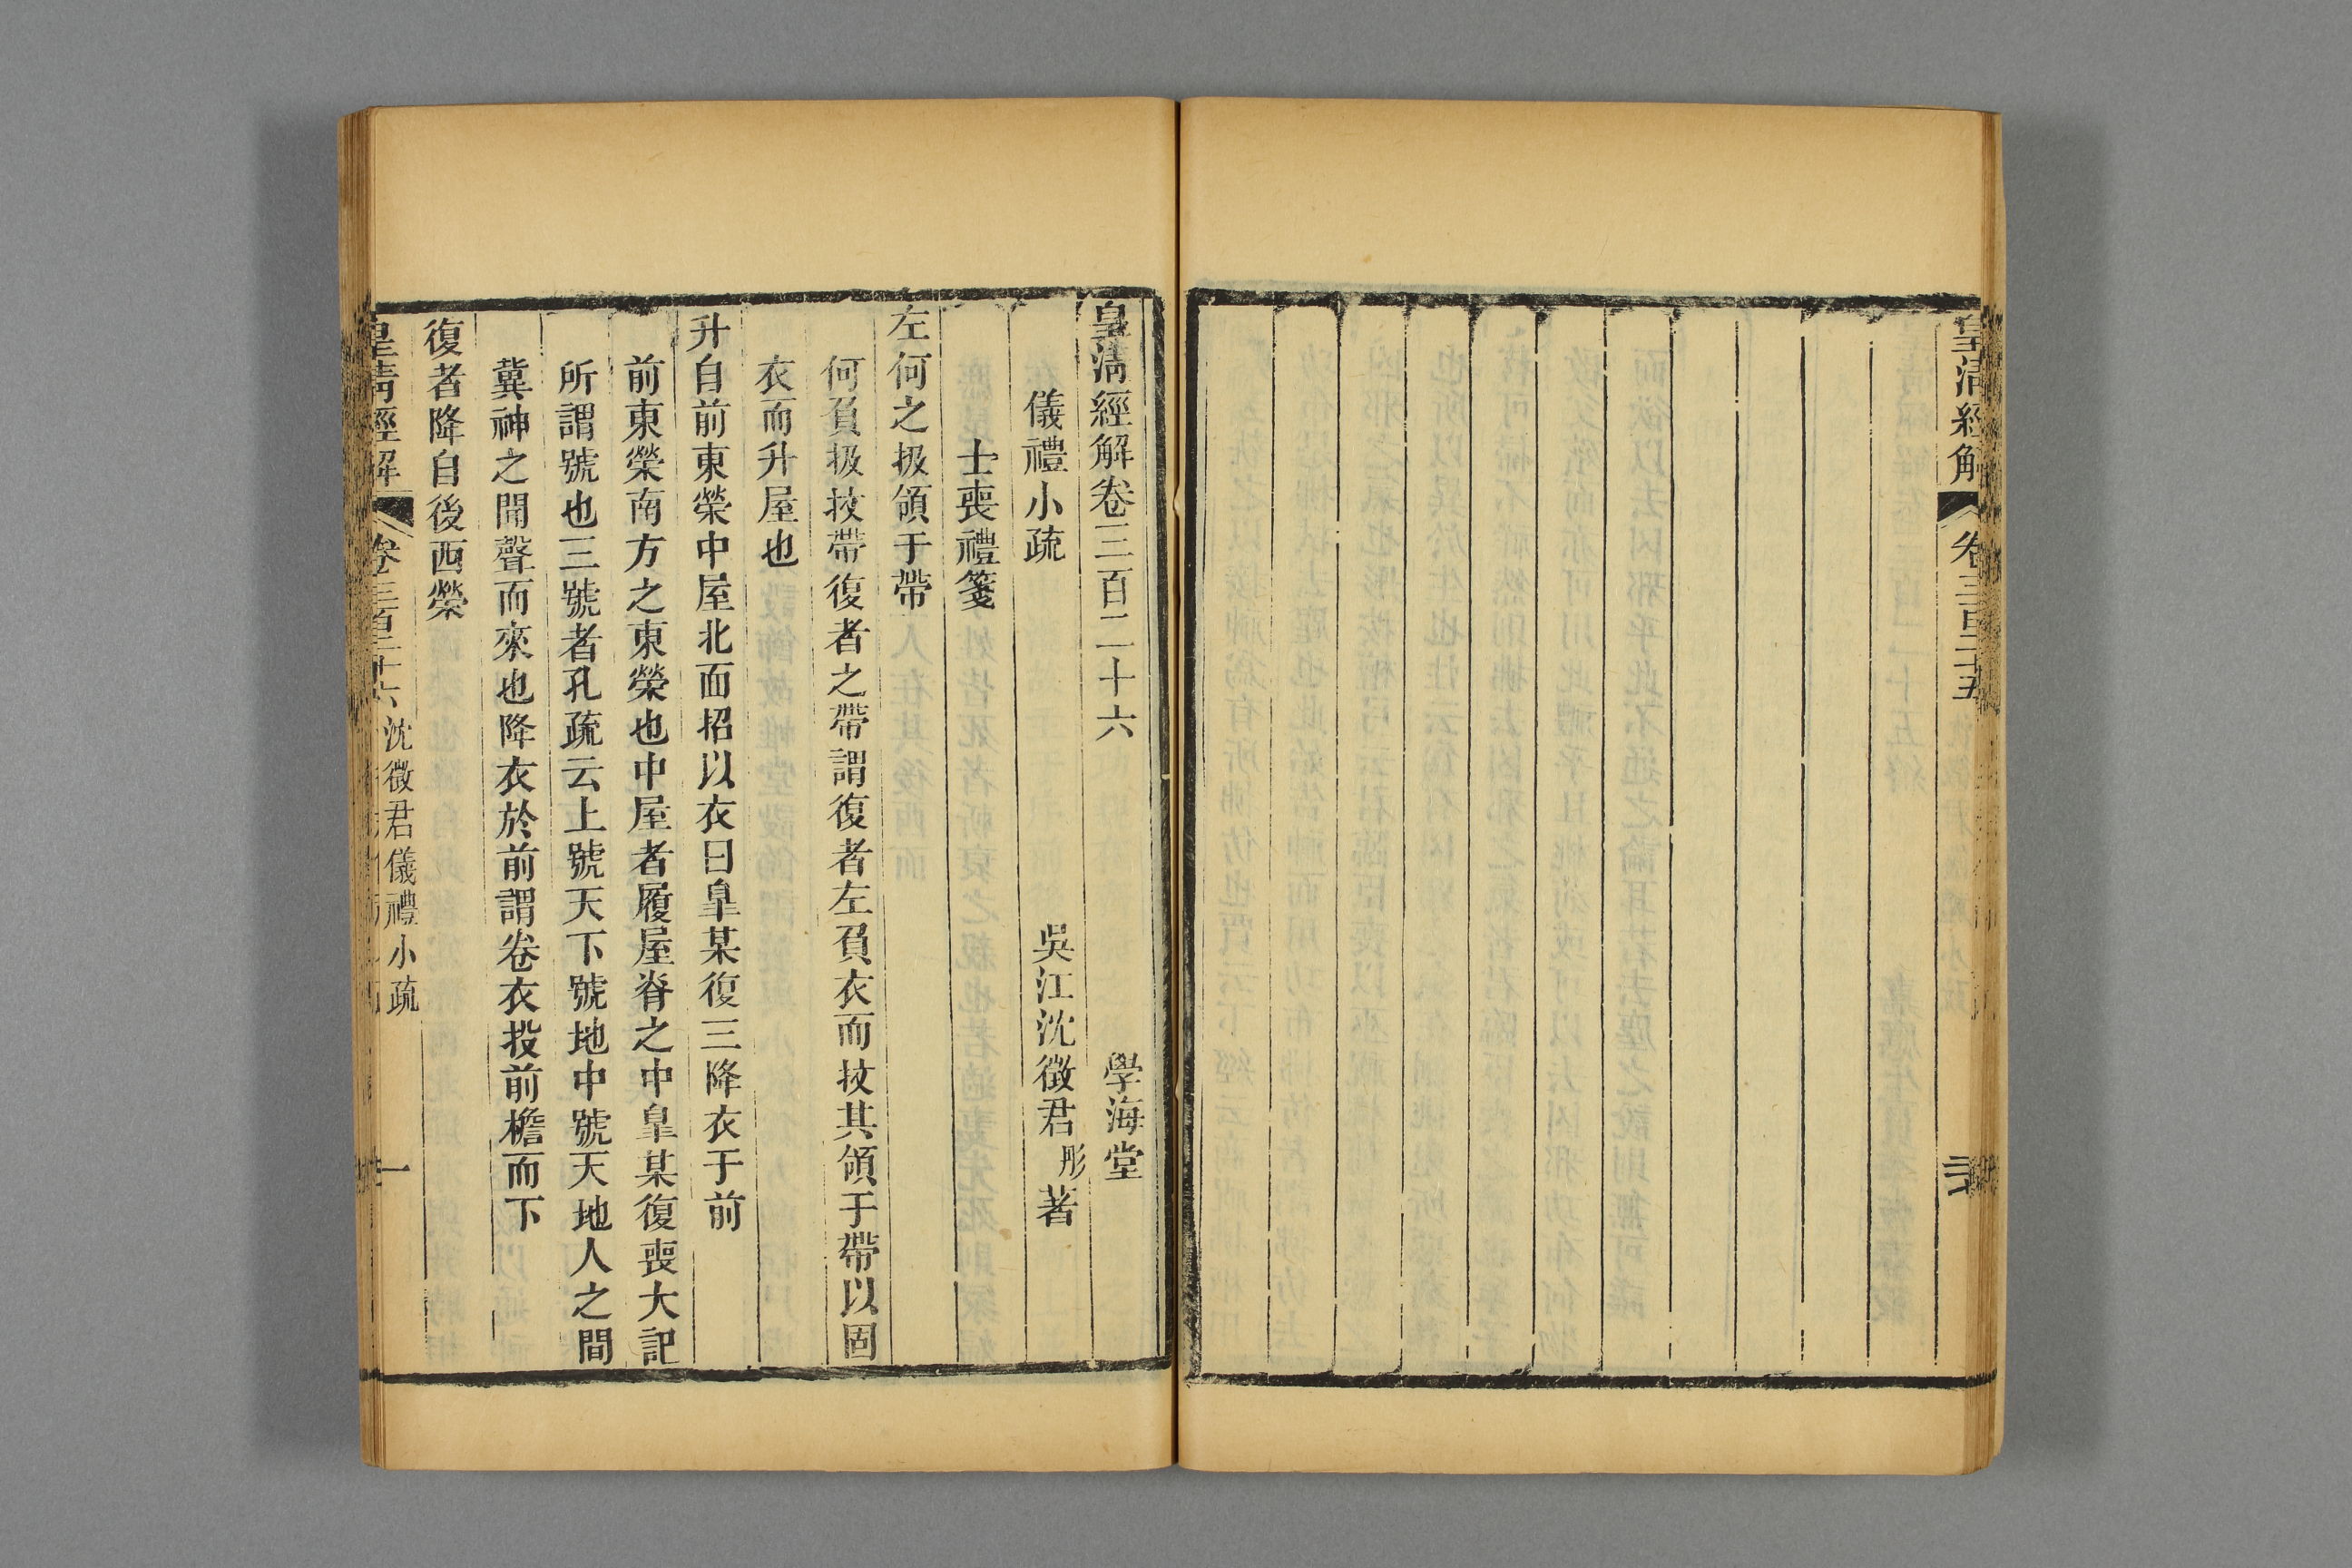 皇清經解
卷三百二十五
皇清經解卷三百二十六
學海堂
儀禮小疏
吳江沈徵君彤著
士喪禮箋
左何之扱領于帶
何負扱扱帶復者之帶謂復者左負衣而扱其領于帶以固
衣而升屋也
升自前東榮中屋北面招以衣曰臯某復三降衣于前
前東榮南方之東榮也中屋者履屋脊之中臯某復喪大記
所謂號也三號者孔疏云上號天下號地中號天地人之間
冀神之聞聲而來也降衣於前謂卷衣投前檐而下
復者降自後西榮
皇清經解
卷三百二十六
沈徵君儀禮小疏
一